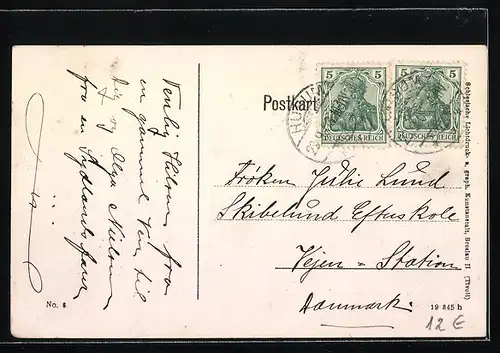 Venlig Hilsen fra
en gammel Ven til
Dig og Olga Nielsen
fra en Sydlandsfarer
Postkart
5 5
DEUTSCHES REICH
5 5
DEUTSCHES REICH
Frøken Julie Lund
Skibelund Efterskole
Vejen = Station
Danmark.
No. 8
19 845 h
12 €
Schlesische Lichtdruck- u. graph. Kunstanstalt, Breslau II (Tivoli)